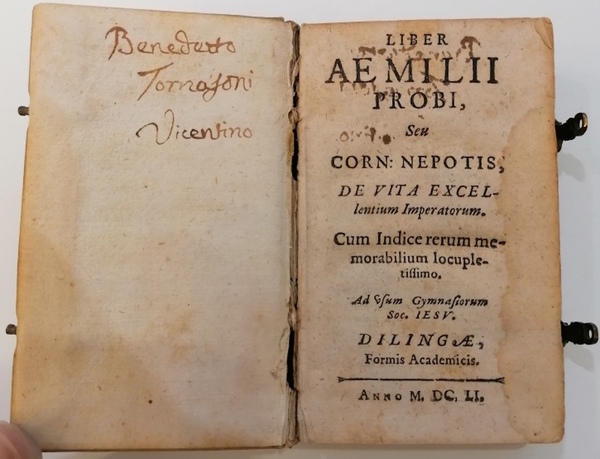 Benedetto
Tornasoni
Vicentino
LIBER
AEMILII
PROBI,
Seu
CORN: NEPOTIS,
DE VITA EXCEL-
lentium Imperatorum.
Cum Indice rerum me-
morabilium locuple-
tissimo.
Ad Vsum Gymnasiorum
Soc. IESV.
DILINGÆ,
Formis Academicis.
ANNO M. DC. LI.